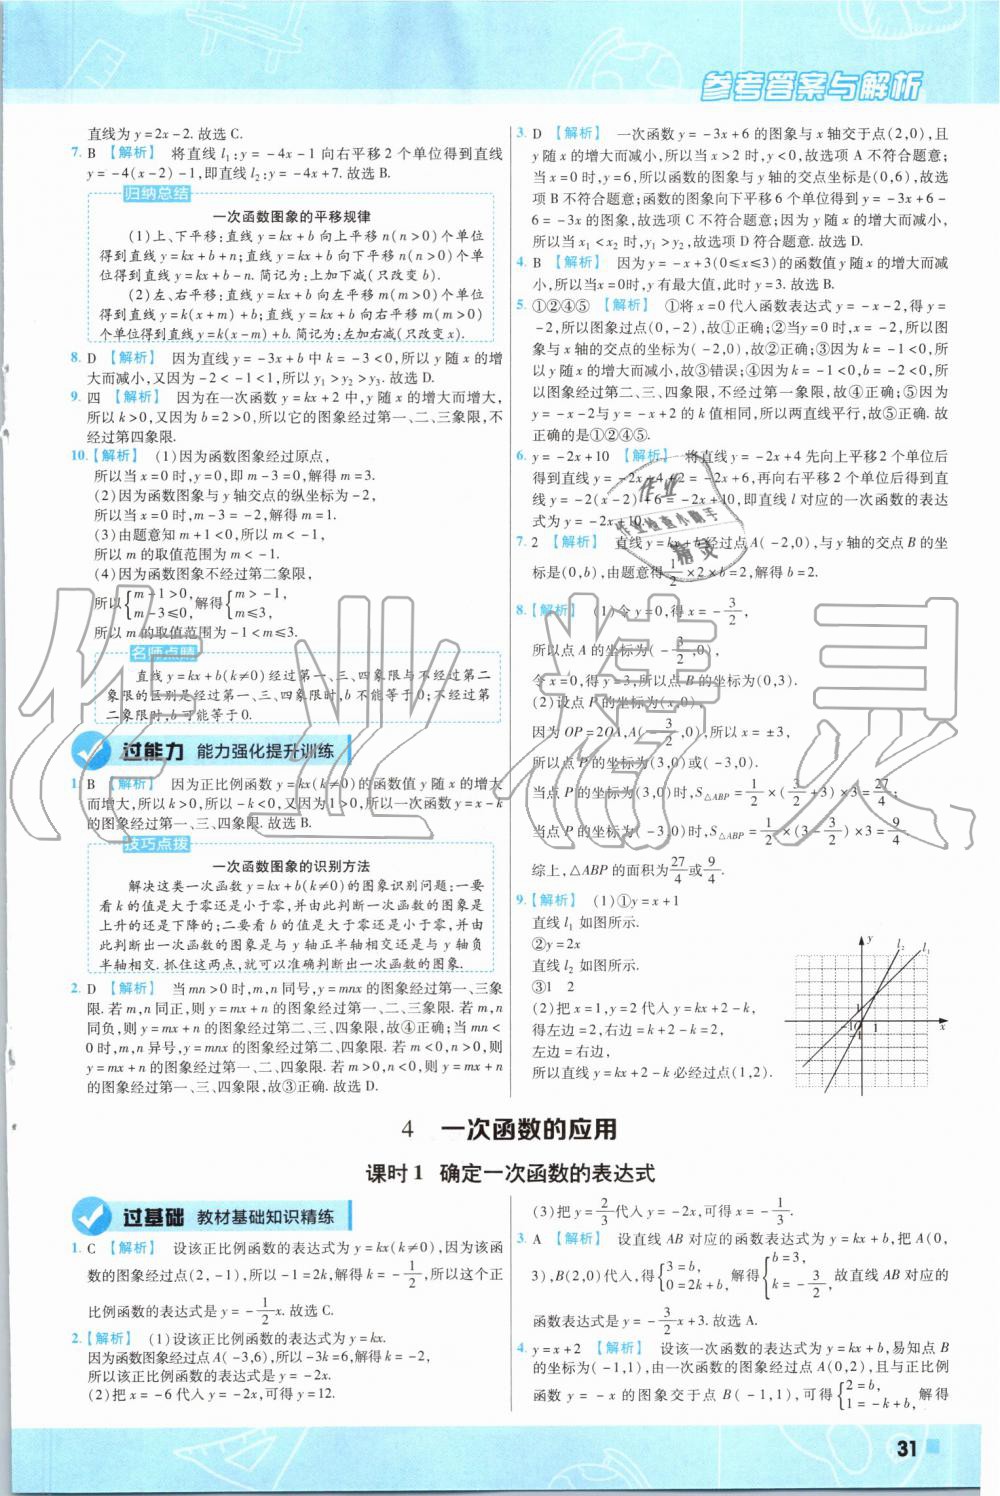 参考答案与解析
直线为y=2x-2.故选C.
7. B 【解析】 将直线l₁:y=-4x-1向右平移2个单位得到直线
y=-4(x-2)-1,即直线l₂:y=-4x+7.故选B.
归纳总结
一次函数图象的平移规律
(1)上、下平移:直线y=kx+b向上平移n(n>0)个单位
得到直线y=kx+b+n;直线y=kx+b向下平移n(n>0)个单
位得到直线y=kx+b-n.简记为:上加下减(只改变b).
(2)左、右平移:直线y=kx+b向左平移m(m>0)个单位
得到直线y=k(x+m)+b;直线y=kx+b向右平移m(m>0)
个单位得到直线y=k(x-m)+b.简记为:左加右减(只改变x).
8. D 【解析】 因为直线y=-3x+b中k=-3<0,所以y随x的增
大而减小,又因为-2<-1<1,所以y₁>y₂>y₃.故选D.
9. 四 【解析】 因为在一次函数y=kx+2中,y随x的增大而增大,
所以k>0,又因为b=2>0,所以它的图象经过第一、二、三象限,不
经过第四象限.
10.【解析】 (1)因为函数图象经过原点,
所以当x=0时,y=0,即m-3=0,解得m=3.
(2)因为函数图象与y轴交点的纵坐标为-2,
所以当x=0时,m-3=-2,解得m=1.
(3)由题意知m+1<0,所以m<-1,
所以m的取值范围为m<-1.
(4)因为函数图象不经过第二象限,
所以{m+1>0, m-3≤0, 解得{m>-1, m≤3,
所以m的取值范围为-1<m≤3.
名师点睛
直线y=kx+b(k≠0)经过第一、三、四象限与不经过第二
象限的区别是经过第一、三、四象限时,b不能等于0;不经过第
二象限时,b可能等于0.
过能力 能力强化提升训练
1. B 【解析】 因为正比例函数y=kx(k≠0)的函数值y随x的增大
而增大,所以k>0,所以-k<0,又因为1>0,所以一次函数y=x-k
的图象经过第一、三、四象限.故选B.
技巧点拨
一次函数图象的识别方法
解决这类一次函数y=kx+b(k≠0)的图象识别问题:一要
看k的值是大于零还是小于零,并由此判断一次函数的图象是
上升的还是下降的;二要看b的值是大于零还是小于零,并由
此判断出一次函数的图象是与y轴正半轴相交还是与y轴负
半轴相交.抓住这两点,就可以准确判断出一次函数的图象.
2. D 【解析】 当mn>0时,m,n同号,y=mnx的图象经过第一、三象
限.若m,n同正,则y=mx+n的图象经过第一、二、三象限.若m,n
同负,则y=mx+n的图象经过第二、三、四象限,故④正确;当mn<
0时,m,n异号,y=mnx的图象经过第二、四象限.若m<0,n>0,则
y=mx+n的图象经过第一、二、四象限.若m>0,n<0,则y=mx+n
的图象经过第一、三、四象限,故③正确.故选D.
3. D 【解析】 一次函数y=-3x+6的图象与x轴交于点(2,0),且
y随x的增大而减小,所以当x>2时,y<0,故选项A不符合题意;
当x=0时,y=6,所以函数的图象与y轴的交点坐标是(0,6),故选
项B不符合题意;函数的图象向下平移6个单位得到y=-3x+6-
6=-3x的图象,故选项C不符合题意;因为y随x的增大而减小,
所以当x₁<x₂时,y₁>y₂,故选项D符合题意.故选D.
4. B 【解析】 因为y=-x+3(0≤x≤3)的函数值y随x的增大而减
小,所以当x=0时,y有最大值,此时y=3.故选B.
5. ①②④⑤ 【解析】 ①将x=0代入函数表达式y=-x-2,得y=
-2,所以图象过点(0,-2),故①正确;②当y=0时,x=-2,所以图
象与x轴的交点的坐标为(-2,0),故②正确;③因为k=-1<0,所
以y随x的增大而减小,故③错误;④因为k=-1<0,b=-2<0,所
以图象经过第二、三、四象限,不经过第一象限,故④正确;⑤因为
y=-x-2与y=-x+2的k值相同,所以两直线平行,故⑤正确.故
正确的是①②④⑤.
6. y=-2x+10 【解析】 将直线y=-2x+4先向上平移2个单位后
得到直线y=-2x+4+2=-2x+6,再向右平移2个单位得到直
线y=-2(x-2)+6=-2x+10,即直线l对应的一次函数的表达
式为y=-2x+10.
7. 2 【解析】 直线y=kx+b经过点A(-2,0),与y轴的交点B的坐
标是(0,b),由题意得1/2×2×b=2,解得b=2.
8.【解析】 (1)令y=0,得x=-3/2,
所以点A的坐标为(-3/2,0),
令x=0,得y=3,所以点B的坐标为(0,3).
(2)设点P的坐标为(x,0),
因为OP=2OA,A(-3/2,0),所以x=±3,
所以点P的坐标为(3,0)或(-3,0).
当点P的坐标为(3,0)时,S△ABP=1/2×(3/2+3)×3=27/4;
当点P的坐标为(-3,0)时,S△ABP=1/2×(3-3/2)×3=9/4
综上,△ABP的面积为27/4或9/4.
9.【解析】 (1)①y=x+1
直线l₁如图所示.
②y=2x
直线l₂如图所示.
③1 2
(2)把x=1,y=2代入y=kx+2-k,
得左边=2,右边=k+2-k=2,
左边=右边,
所以直线y=kx+2-k必经过点(1,2).
y l₂ l₁
-1 O 1 x
1
4 一次函数的应用
课时1 确定一次函数的表达式
过基础 教材基础知识精练
1. C 【解析】 设该正比例函数的表达式为y=kx(k≠0),因为该函
数的图象经过点(2,-1),所以-1=2k,解得k=-1/2,所以这个正
比例函数的表达式是y=-1/2x.故选C.
2.【解析】 (1)设该正比例函数的表达式为y=kx.
因为函数图象过点A(-3,6),所以-3k=6,解得k=-2,
所以该正比例函数的表达式是y=-2x.
(2)把x=-6代入y=-2x,可得y=12.
(3)把y=2/3代入y=-2x,可得x=-1/3.
3. A 【解析】 设直线AB对应的函数表达式为y=kx+b,把A(0,
3),B(2,0)代入,得{3=b, 0=2k+b, 解得{b=3, k=-3/2, 故直线AB对应的
函数表达式为y=-3/2x+3.故选A.
4. y=x+2 【解析】 设该一次函数的表达式为y=kx+b,易知点B
的坐标为(-1,1),由一次函数的图象过点A(0,2),且与正比例
函数y=-x的图象交于点B(-1,1),可得{2=b, 1=-k+b, 解得
31
作业精灵
作业
作业检查小助手
精灵